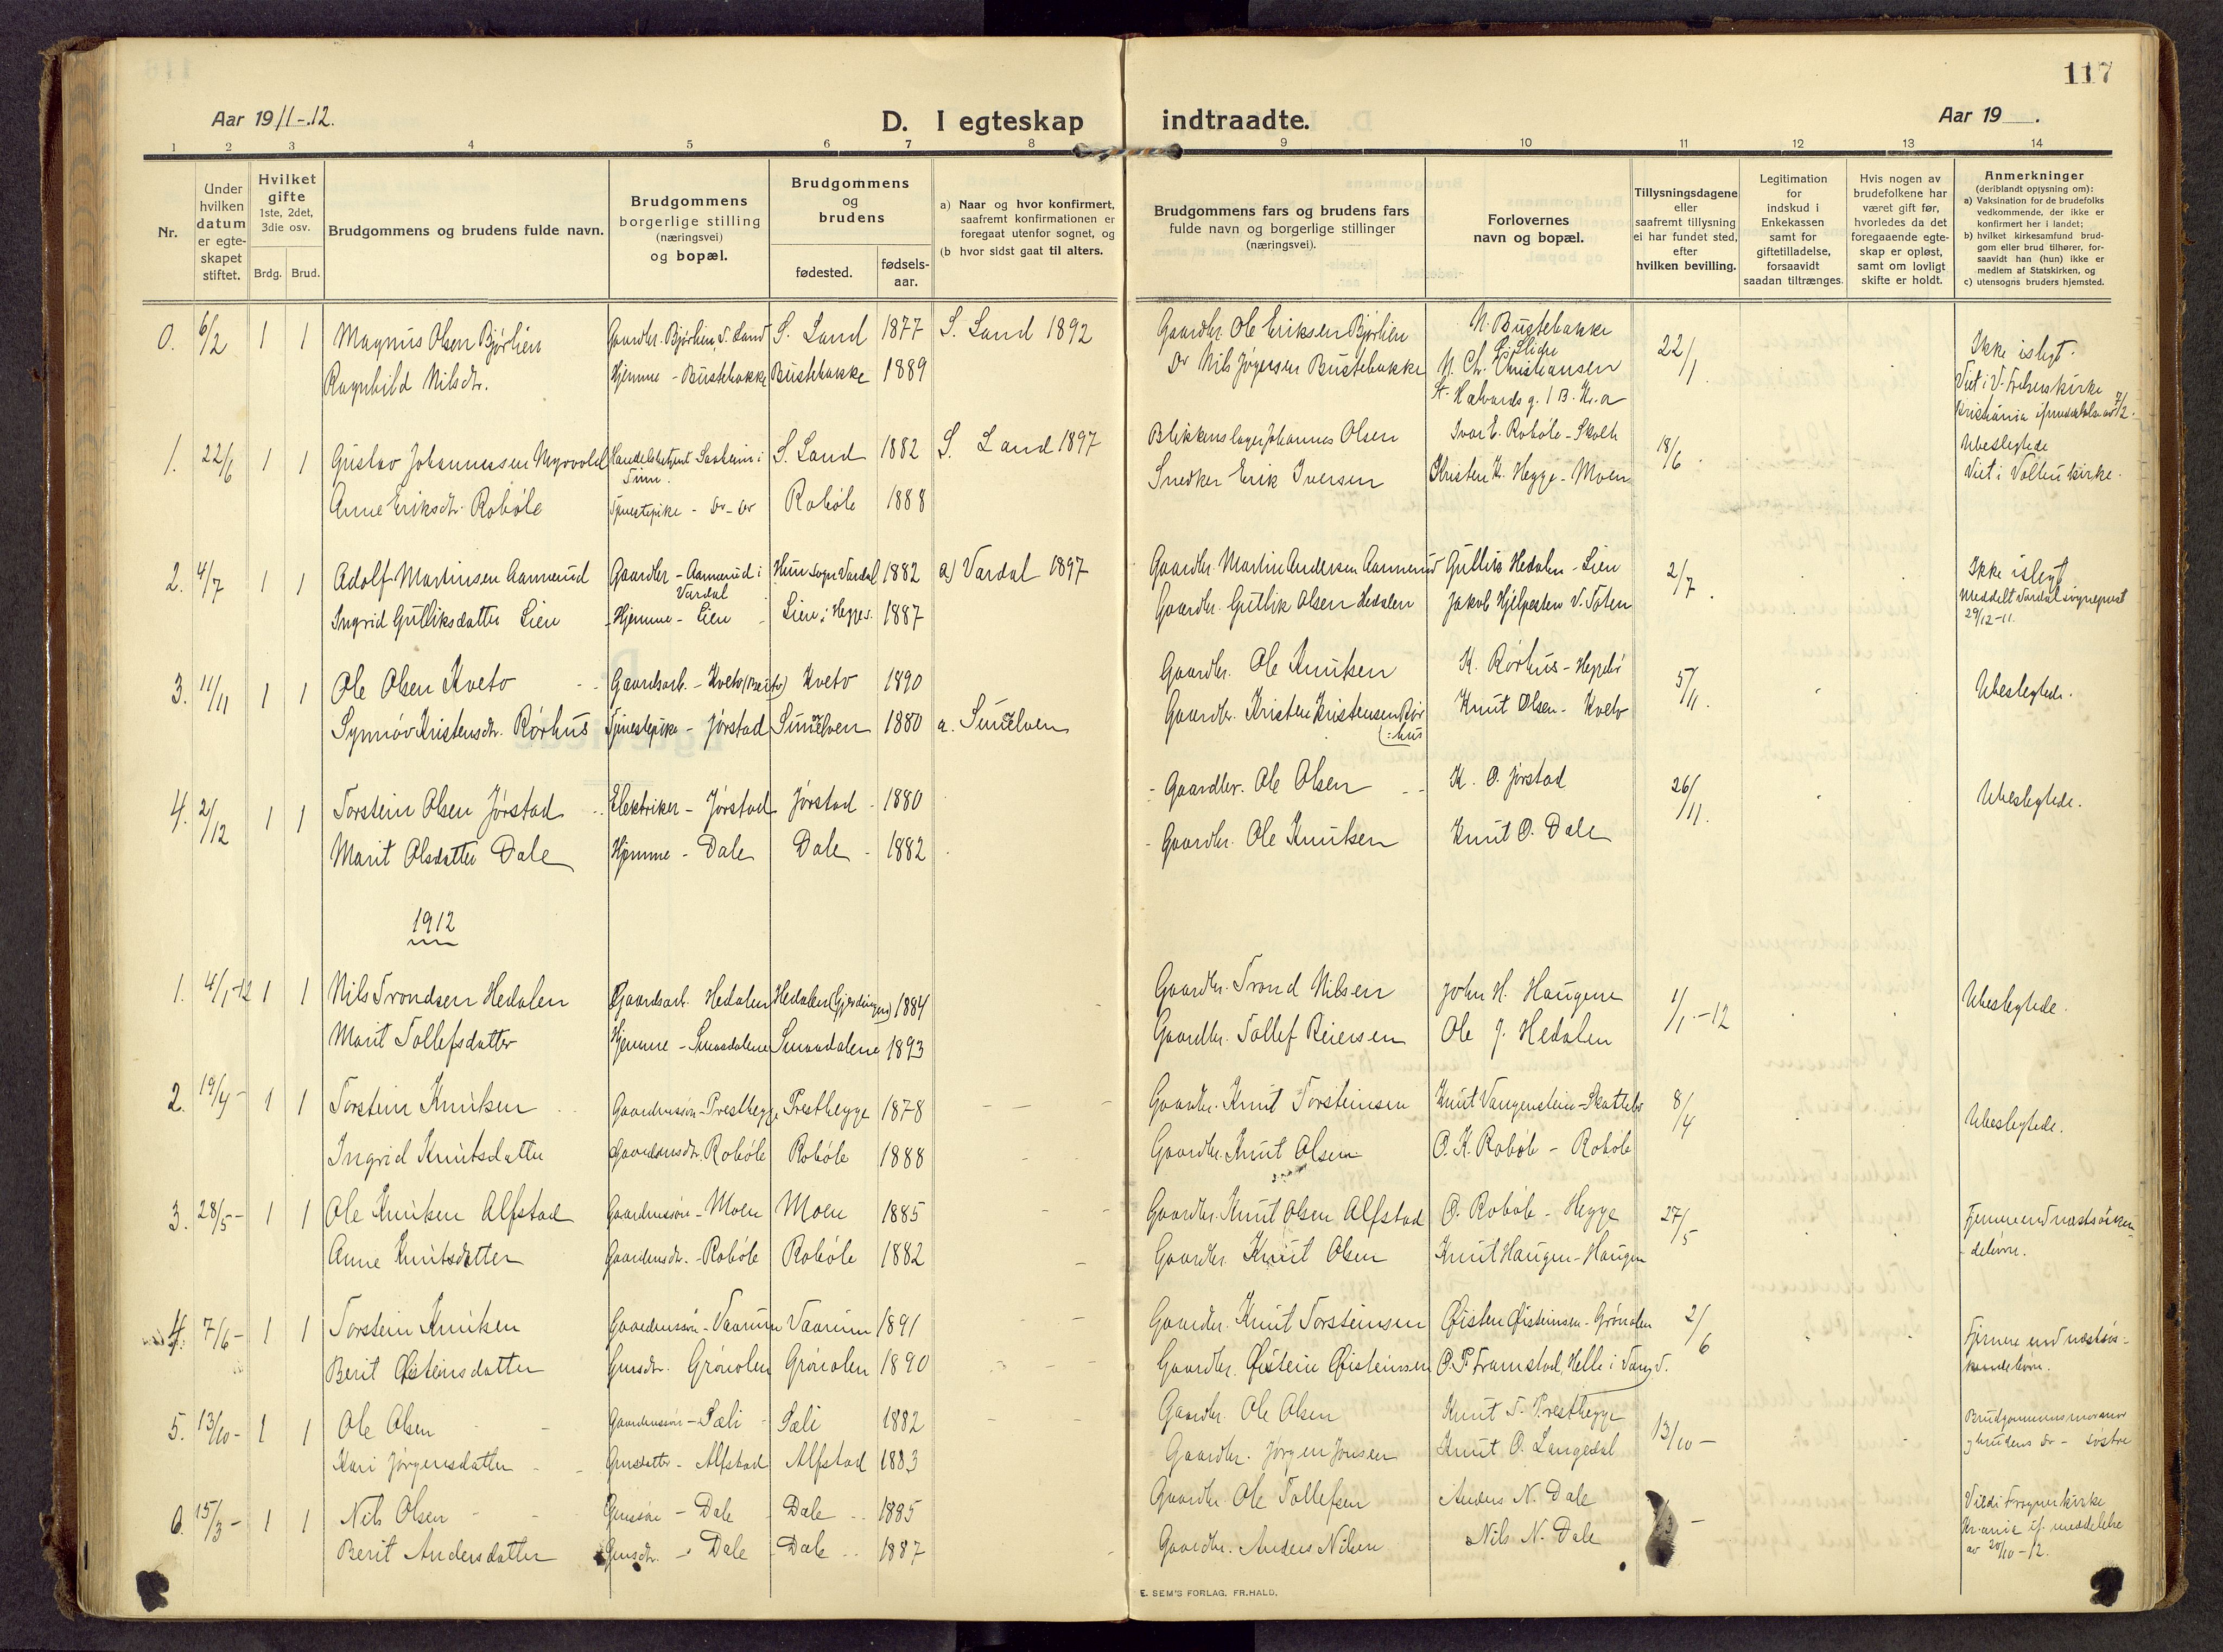 117
Aar 1911-12.
D. I egteskap indtraadte.
Aar 19 .
1 2 3 4 5 6 7 8 9 10 11 12 13 14
Nr.
Under hvilken datum er egte-skapet stiftet.
Hvilket gifte 1ste, 2det, 3die osv.
Brdg. Brud.
Brudgommens og brudens fulde navn.
Brudgommens borgerlige stilling (næringsvei) og bopæl.
Brudgommens og brudens
fødested.
fødsels-aar.
a) Naar og hvor konfirmert, saafremt konfirmationen er foregaat utenfor sognet, og
(b hvor sidst gaat til alters.
Brudgommens fars og brudens fars fulde navn og borgerlige stillinger (næringsvei).
Forlovernes navn og bopæl.
Tillysningsdagene eller saafremt tillysning ei har fundet sted, efter hvilken bevilling.
Legitimation for indskud i Enkekassen samt for giftetilladelse, forsaavidt saadan tiltrænges.
Hvis nogen av brudefolkene har været gift før, hvorledes da det foregaaende egte-skap er opløst, samt om lovligt skifte er holdt.
Anmerkninger (deriblandt opiysning om):
a) Vaksination for de brudefolks vedkommende, der ikke er konfirmert her i landet;
b) hvilket kirkesamfund brud-gom eller brud tilhører, for-saavidt han (hun) ikke er medlem af Statskirken, og
c) utensogns bruders hjemsted.
0. 6/2 1 1 Magnus Olsen Bjørlien Gaardbr. Bjørlien, S. Land S. Land 1877 S. Land 1892 Gaardbr. Ole Eriksen Bjørlien N. Bustebakke 22/1 Ikke islegt.
Ragnhild Nilsdtr. Hjemme - Bustebakke Bustebakke 1889 Do Nils Jørgensen Bustebakke N. Chr. Christiansen
1. 22/6 1 1 Gustav Johannessen Myrvold Handelsbetjent Saaheim i Tinn. S. Land 1882 S. Land 1897 Blikkenslager Johannes Olsen Ivar E. Robøle - 18/6 Ubeslegtede
Anne Eriksdtr. Robøle Tjenestepike - Do - Do Robøle 1888 Snedker Erik Iversen Kristen K. Hegge - Moen Viet i Volbu kirke.
2. 4/7 1 1 Adolf Martinsen Aannerud Gaardbr - Aannerud i Vardal Hun sogn Vardal 1882 a) Vardal 1897 Gaardbr. Martin Andersen Aannerud Gullik Hedalen - Lien 2/7 Ikke islegt
Ingrid Gulliksdatter Lien Hjemme - Lien Lien i Hegges. 1887 Gaardbr. Gullik Olsen Hedalen Jakob Hjelpesten V. Toten Meddelt Vardal sogneprest 29/12-11.
3. 11/11 1 1 Ole Olsen Kveto Gaardsarb. - Kveto (Beito) Kveto 1890 Gaardbr. Ole Knutsen K. Rørhus - 5/11. Ubeslegtede.
Synnøv Kristensdtr. Rørhus Tjenestepike - Jørstad Sunelven 1880 a. Sunelven Gaardbr. Kristen Kristensen Rør(:hus Knut Olsen - Kveto
4. 2/12 1 1 Torstein Olsen Jørstad Elektriker - Jørstad Jørstad 1880 Gaardbr. Ole Olsen K. O. Jørstad 26/11. Ubeslegtede.
Marit Olsdatter Dale Hjemme - Dale Dale 1882 Gaardbr. Ole Knutsen Knut O. Dale
1912
1. 4/1-12 1 1 Nils Trondsen Hedalen Gaardsarb. Hedalen Hedalen (Gjerdingen) 1884 Gaardbr. Trond Nilsen John H. Haugene 1/1-12 Ubeslegtede.
Marit Tollefsdatter Hjemme - Smaadalene Smaadalene 1893 Gaardbr. Tollef Reiersen Ole J. Hedalen
2. 19/4- 1 1 Torstein Knutsen Gaardmssøn - Presthegge Presthegge 1878 Gaardbr. Knut Torsteinsen Knut Vangenstein - Skattebo 8/4 Ubeslegtede.
Ingrid Knutsdatter Gaardmsdtr. Robøle Robøle 1888 Gaardbr. Knut Olsen O. K. Robøle - Robøle
3. 28/5- 1 1 Ole Knutsen Alfstad Gaardmssøn - Moen Moen 1885 Gaardbr. Knut Olsen Alfstad O. Robøle - Hegge 27/5 Fjernere end næstsøsken-
Anne Knutsdatter Gaardmsdtr. - Robøle Robøle 1882 Gaardbr. Knut Olsen Knut Haugen - Haugen debørn.
4. 7/6- 1 1 Torstein Knutsen Gaardmssøn - Vaarum Vaarum 1891 Gaardbr. Knut Torsteinsen Øisten Øisteinsen - Grønolen 2/6 Fjernere end næstsøs-
Berit Øisteinsdatter Gmsdtr. Grønolen Grønolen 1890 Gaardbr. Øistein Øisteinsen O. P. Framstad, Helle i Vang V. kendebørn.
5. 13/10- 1 1 Ole Olsen Gaardmssøn - Sæli Sæli 1882 Gaardbr. Ole Olsen Knut T. Presthegge 13/10- Brudgommens mormor
Kari Jørgensdatter Gmsdatter - Alfstad Alfstad 1883 Gaardbr. Jørgen Jonsen Knut O. Langedal og brudens do - søstre
6. 15/3- 1 1 Nils Olsen Gmssøn - Dale Dale 1885 Gaardbr. Ole Tollefsen Anders N. Dale Viet i Frogner kirke
Berit Andersdatter Gmsdtr. - Dale Dale 1887 Gaardbr. Anders Nilsen Nils N. Dale Kr.ania if. meddelelse av 20/10-12.
E. SEM'S FORLAG, FR.HALD.